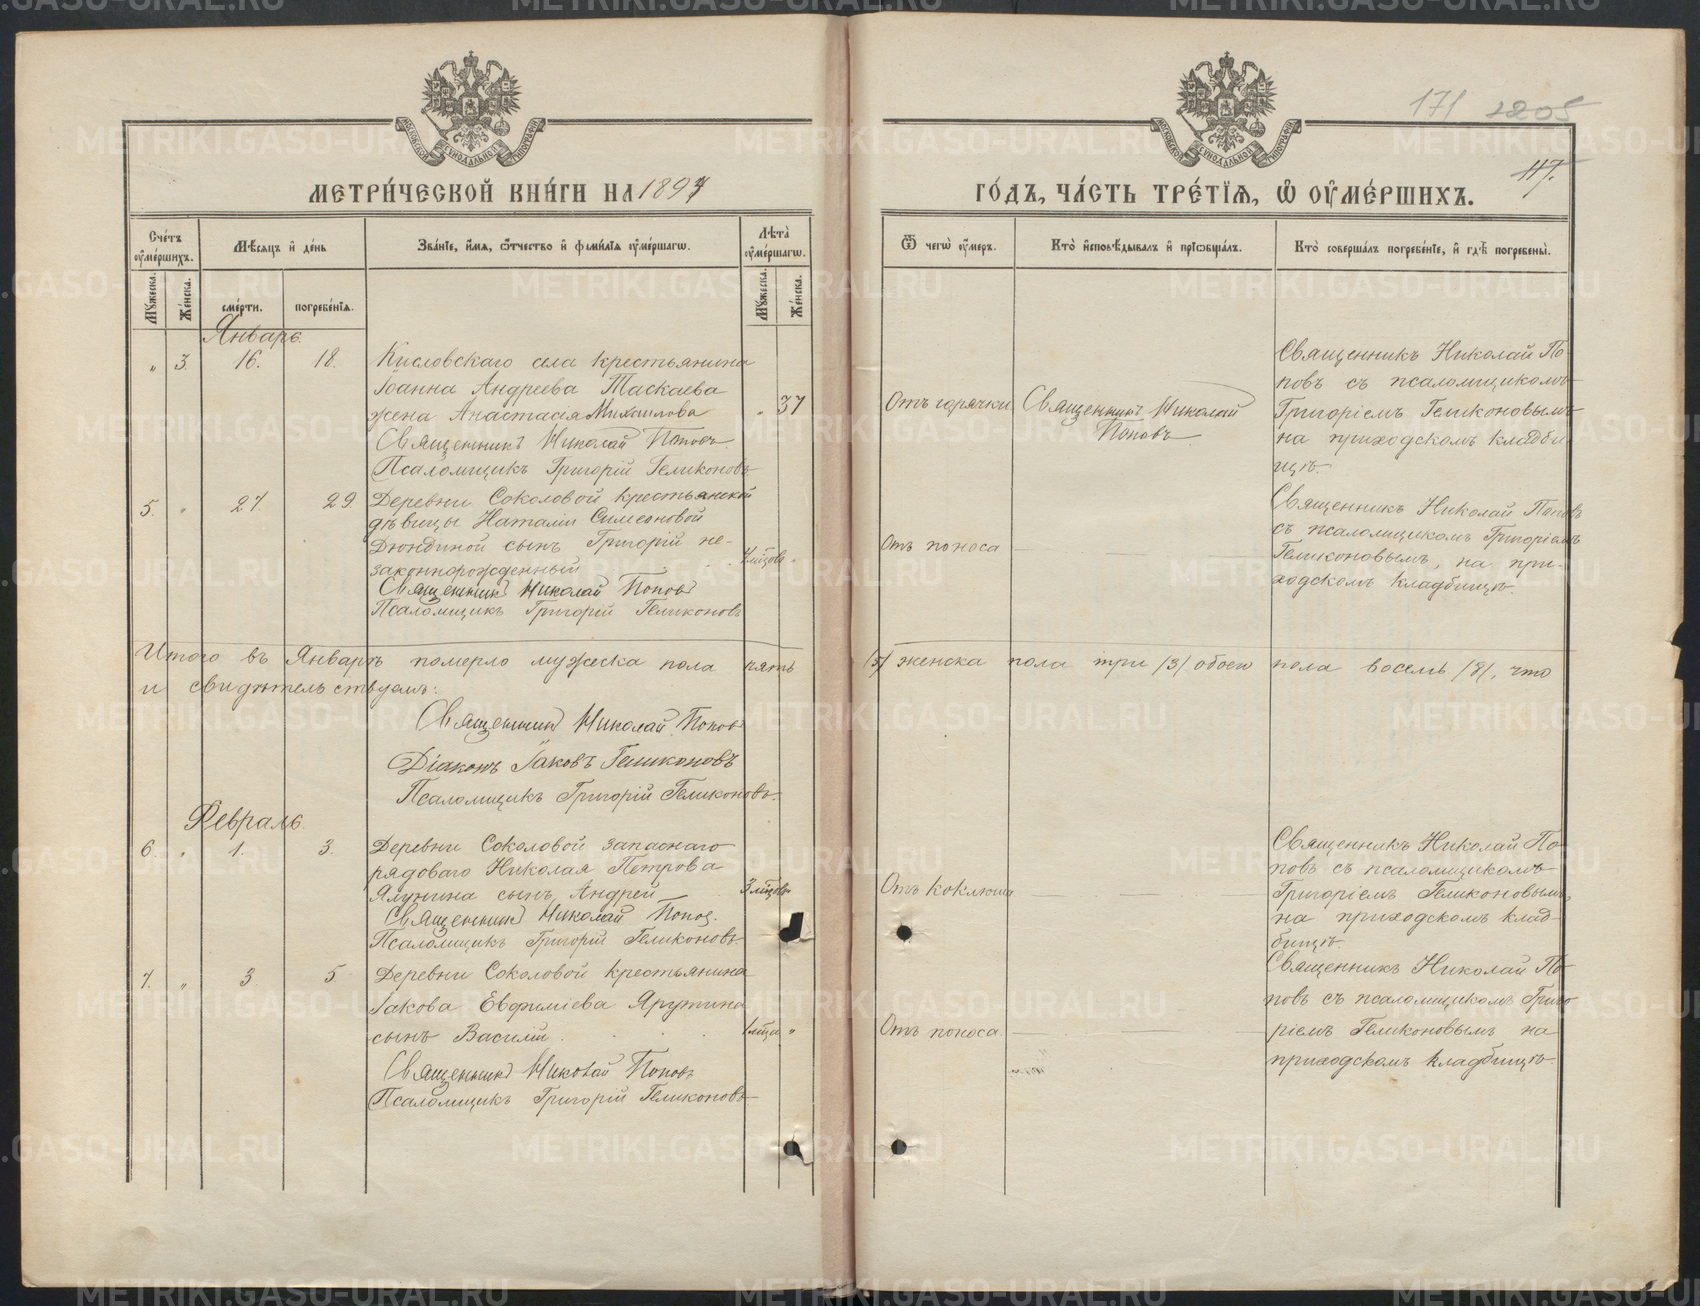 171 2205
117.
МЕТРИ́ЧЕСКОЙ КНИ́ГИ НА 1897
ГО́ДЪ, ЧА́СТЬ ТРЕ́ТІЯ, Ѡ ОУМЕ́РШИХЪ.
Сче́тъ оумершихъ.
Мужеска.
Же́нска.
Мѣсяцъ и де́нь
сме́рти.
погребе́нія.
Зва́ніе, и́мя, ѻтчество и фамилія оуме́ршагѡ.
Лѣта̀ оуме́ршагѡ.
Мужеска.
Же́нска.
Ѿ чегѡ̀ оумеръ.
Кто̀ исповѣдывалъ и пріѡбщалъ.
Кто̀ соверша́лъ погребе́ніе, и гдѣ погребены̀.
Январь.
„ 3. 16. 18. Кисловскаго села крестьянина
Іоанна Андреева Таскаева
жена Анастасія Михаилова „ 37
Священникъ Николай Поповъ.
Псаломщикъ Григорій Геликоновъ
Отъ горячки
Священникъ Николай
Поповъ
Священникъ Николай По-
повъ съ псаломщикомъ
Григоріемъ Геликоновымъ
на приходскомъ кладби-
щѣ.
5. „ 27. 29. Деревни Соколовой крестьянской
дѣвицы Наталіи Симеоновой
Дюндиной сынъ Григорій не-
законнорожденный
Священникъ Николай Поповъ
Псаломщикъ Григорій Геликоновъ
Отъ поноса
Священникъ Николай Поповъ
съ псаломщикомъ Григоріемъ
Геликоновымъ, на при-
ходскомъ кладбищѣ.
Итого въ Январѣ померло мужеска пола пять /5/ женска пола три /3/ обоего пола восемь /8/, что
и свидѣтельствуемъ:
Священникъ Николай Поповъ
Діаконъ Іаковъ Геликоновъ
Псаломщикъ Григорій Геликоновъ.
Февраль
6. „ 1. 3. Деревни Соколовой запаснаго
рядоваго Николая Петрова
Ялунина сынъ Андрей 3 мѣсцовъ
Священникъ Николай Поповъ.
Псаломщикъ Григорій Геликоновъ
Отъ коклюша
Священникъ Николай По-
повъ съ псаломщикомъ
Григоріемъ Геликоновымъ,
на приходскомъ клад-
бищѣ.
7. „ 3 5 Деревни Соколовой крестьянина
Іакова Евфиміева Яружина
сынъ Василій. 1 мѣсца „
Священникъ Николай Поповъ
Псаломщикъ Григорій Геликоновъ
Отъ поноса
Священникъ Николай По-
повъ съ псаломщикомъ Григо
ріемъ Геликоновымъ на
приходскомъ кладбищѣ
METRIKI.GASO-URAL.RU